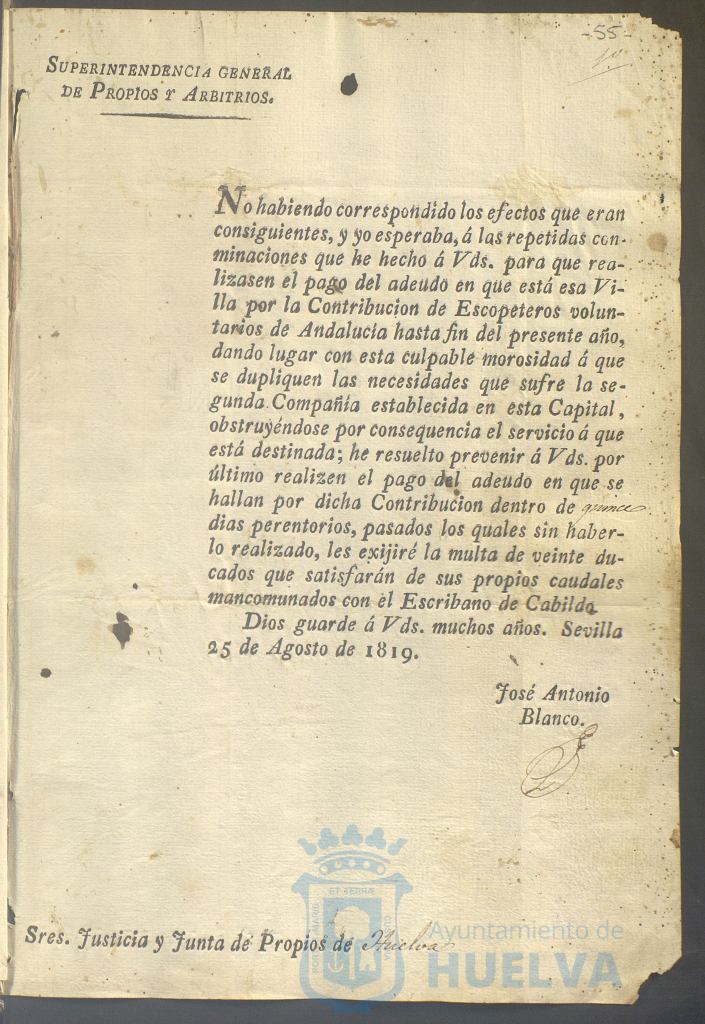 -55-
SUPERINTENDENCIA GENERAL
DE PROPIOS Y ARBITRIOS.
No habiendo correspondido los efectos que eran
consiguientes, y yo esperaba, á las repetidas con-
minaciones que he hecho á Vds. para que rea-
lizasen el pago del adeudo en que está esa Vi-
lla por la Contribucion de Escopeteros volun-
tarios de Andalucía hasta fin del presente año,
dando lugar con esta culpable morosidad á que
se dupliquen las necesidades que sufre la se-
gunda Compañía establecida en esta Capital,
obstruyéndose por consequencia el servicio á que
está destinada; he resuelto prevenir á Vds. por
último realizen el pago del adeudo en que se
hallan por dicha Contribucion dentro de quince
dias perentorios, pasados los quales sin haber-
lo realizado, les exijiré la multa de veinte du-
cados que satisfarán de sus propios caudales
mancomunados con el Escribano de Cabildo.
Dios guarde á Vds. muchos años. Sevilla
25 de Agosto de 1819.
José Antonio
Blanco.
Sres. Justicia y Junta de Propios de Huelva
Ayuntamiento de
HUELVA